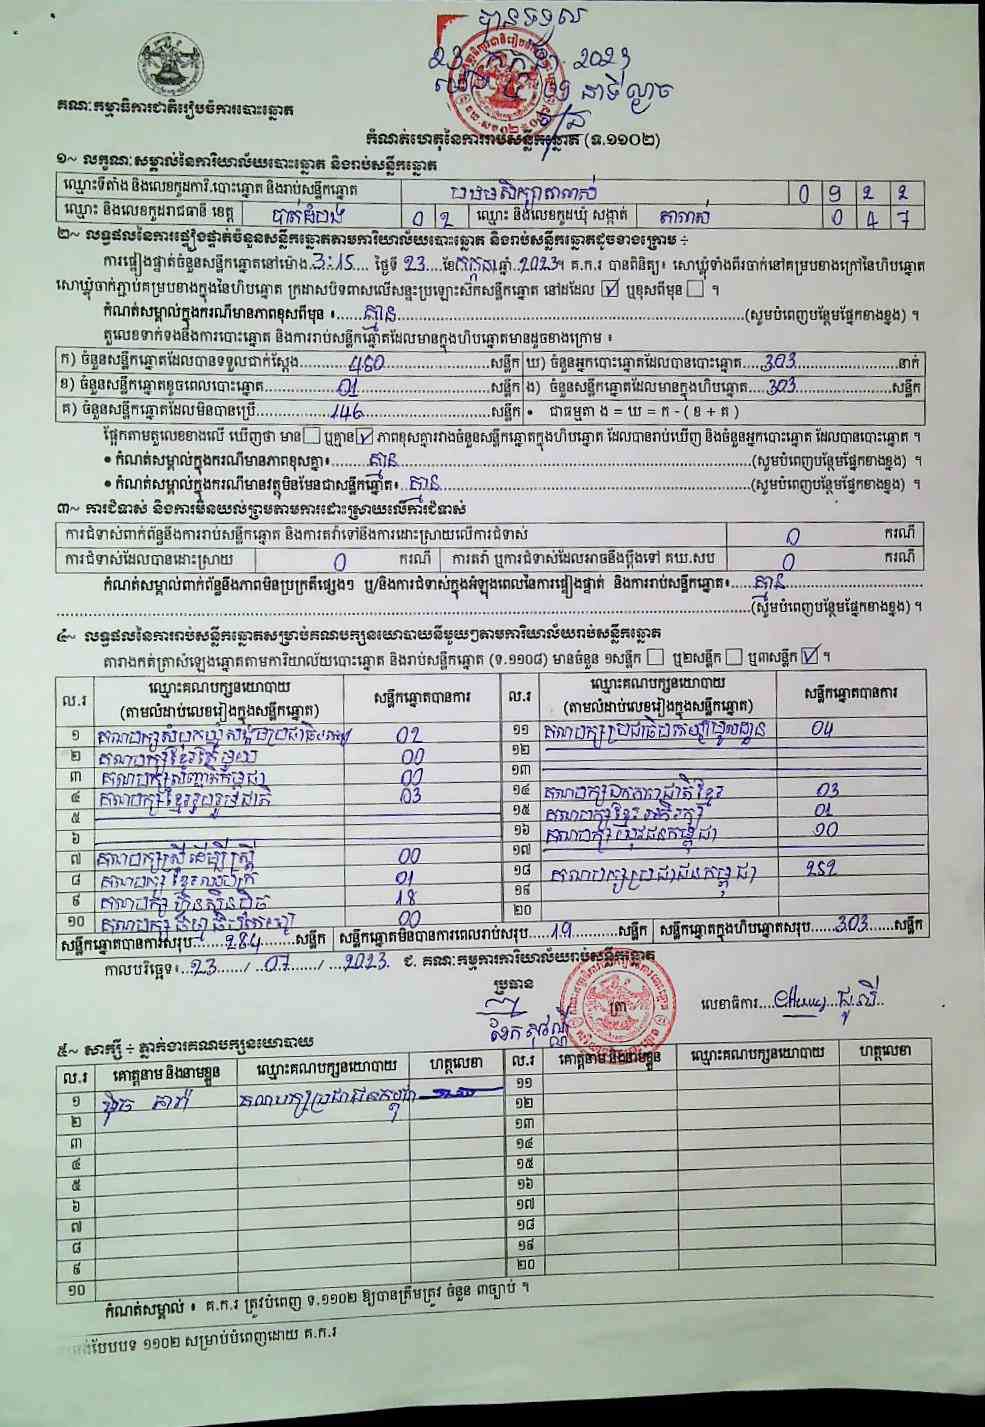 បានទទួល
23 កក្កដា 2023
គណៈកម្មាធិការជាតិរៀបចំការបោះឆ្នោត
កំណត់ហេតុនៃការរាប់សន្លឹកឆ្នោត (ទ.១១០២)
១~ លក្ខណៈសម្គាល់នៃការិយាល័យបោះឆ្នោត និងរាប់សន្លឹកឆ្នោត
ឈ្មោះទីតាំង និងលេខកូដការិ.បោះឆ្នោត និងរាប់សន្លឹកឆ្នោត បឋមសិក្សាតាលាស់ 0 9 2 2
ឈ្មោះ និងលេខកូដរាជធានី ខេត្ត បាត់ដំបង 0 2 ឈ្មោះ និងលេខកូដឃុំ សង្កាត់ តាលាស់ 0 4 7
២~ លទ្ធផលនៃការផ្ទៀងផ្ទាត់ចំនួនសន្លឹកឆ្នោតតាមការិយាល័យបោះឆ្នោត និងរាប់សន្លឹកឆ្នោតដូចខាងក្រោម ÷
ការផ្ទៀងផ្ទាត់ចំនួនសន្លឹកឆ្នោតនៅម៉ោង.3:15.... ថ្ងៃទី 23...ខែកក្កដាឆ្នាំ..2023។ គ.ក.រ បានពិនិត្យ៖ សោឃ្មុំទាំងពីរចាក់នៅគម្របខាងក្រៅនៃហិបឆ្នោត
សោឃ្មុំចាក់ភ្ជាប់គម្របខាងក្នុងនៃហិបឆ្នោត ក្រដាសបិទពាសលើសន្ទះប្រឡោះស៊កសន្លឹកឆ្នោត នៅដដែល ☑ ឬខុសពីមុន ☐ ។
កំណត់សម្គាល់ក្នុងករណីមានភាពខុសពីមុន ៖......គ្មាន......(សូមបំពេញបន្ថែមផ្នែកខាងខ្នង) ។
តួលេខទាក់ទងនឹងការបោះឆ្នោត និងការរាប់សន្លឹកឆ្នោតដែលមានក្នុងហិបឆ្នោតមានដូចខាងក្រោម ៖
ក) ចំនួនសន្លឹកឆ្នោតដែលបានទទួលជាក់ស្តែង......450......សន្លឹក ឃ) ចំនួនអ្នកបោះឆ្នោតដែលបានបោះឆ្នោត....303......នាក់
ខ) ចំនួនសន្លឹកឆ្នោតខូចពេលបោះឆ្នោត......01......សន្លឹក ង) ចំនួនសន្លឹកឆ្នោតដែលមានក្នុងហិបឆ្នោត...303......សន្លឹក
គ) ចំនួនសន្លឹកឆ្នោតដែលមិនបានប្រើ......146......សន្លឹក • ជាធម្មតា ង = ឃ = ក - ( ខ + គ )
ផ្អែកតាមតួលេខខាងលើ ឃើញថា មាន ☐ ឬគ្មាន ☑ ភាពខុសគ្នារវាងចំនួនសន្លឹកឆ្នោតក្នុងហិបឆ្នោត ដែលបានរាប់ឃើញ និងចំនួនអ្នកបោះឆ្នោត ដែលបានបោះឆ្នោត ។
• កំណត់សម្គាល់ក្នុងករណីមានភាពខុសគ្នា៖......គ្មាន......(សូមបំពេញបន្ថែមផ្នែកខាងខ្នង) ។
• កំណត់សម្គាល់ក្នុងករណីមានវត្ថុមិនមែនជាសន្លឹកឆ្នោត៖..គ្មាន......(សូមបំពេញបន្ថែមផ្នែកខាងខ្នង) ។
៣~ ការជំទាស់ និងការមិនយល់ព្រមតាមការដោះស្រាយលើការជំទាស់
ការជំទាស់ពាក់ព័ន្ធនឹងការរាប់សន្លឹកឆ្នោត និងការតវ៉ាទៅនឹងការដោះស្រាយលើការជំទាស់ 0 ករណី
ការជំទាស់ដែលបានដោះស្រាយ 0 ករណី ការតវ៉ា ឬការជំទាស់ដែលអាចនឹងប្តឹងទៅ គឃ.សប 0 ករណី
កំណត់សម្គាល់ពាក់ព័ន្ធនឹងភាពមិនប្រក្រតីផ្សេងៗ ឬ/និងការជំទាស់ក្នុងអំឡុងពេលនៃការផ្ទៀងផ្ទាត់ និងការរាប់សន្លឹកឆ្នោត៖......គ្មាន......
......(សូមបំពេញបន្ថែមផ្នែកខាងខ្នង) ។
៤~ លទ្ធផលនៃការរាប់សន្លឹកឆ្នោតសម្រាប់គណបក្សនយោបាយនីមួយៗតាមការិយាល័យរាប់សន្លឹកឆ្នោត
តារាងកត់ត្រាសំឡេងឆ្នោតតាមការិយាល័យបោះឆ្នោត និងរាប់សន្លឹកឆ្នោត (ទ.១១០៨) មានចំនួន ១សន្លឹក ☐ ឬ២សន្លឹក ☐ ឬ៣សន្លឹក ☑ ។
ល.រ ឈ្មោះគណបក្សនយោបាយ (តាមលំដាប់លេខរៀងក្នុងសន្លឹកឆ្នោត) សន្លឹកឆ្នោតបានការ ល.រ ឈ្មោះគណបក្សនយោបាយ (តាមលំដាប់លេខរៀងក្នុងសន្លឹកឆ្នោត) សន្លឹកឆ្នោតបានការ
១ គណបក្សសំបុកឃ្មុំសង្គមប្រជាធិបតេយ្យ 02 ១១ គណបក្សប្រជាធិបតេយ្យមូលដ្ឋាន 04
២ គណបក្សខ្មែរតែមួយ 00 ១២
៣ គណបក្សសញ្ជាតិកម្ពុជា 00 ១៣
៤ គណបក្សខ្មែររួបរួមជាតិ 03 ១៤ គណបក្សឯកភាពជាតិខ្មែរ 03
៥ ១៥ គណបក្សខ្មែរអភិរក្ស 01
៦ ១៦ គណបក្សយុវជនកម្ពុជា 10
៧ គណបក្សស្រ្តីដើម្បីស្ត្រី 00 ១៧
៨ គណបក្សខ្មែរឈប់ក្រ 01 ១៨ គណបក្សប្រជាជនកម្ពុជា 252
៩ គណបក្សហ្វ៊ុនស៊ិនប៉ិច 18 ១៩
១០ គណបក្សធម្មាធិបតេយ្យ 00 ២០
សន្លឹកឆ្នោតបានការសរុប......284......សន្លឹក សន្លឹកឆ្នោតមិនបានការពេលរាប់សរុប.....19......សន្លឹក សន្លឹកឆ្នោតក្នុងហិបឆ្នោតសរុប......303......សន្លឹក
កាលបរិច្ឆេទ៖...23....../...07....../...2023. ៩. គណៈកម្មការការិយាល័យរាប់សន្លឹកឆ្នោត
ប្រធាន
ត្រា
លេខាធិការ....
៥~ សាក្សី ÷ ភ្នាក់ងារគណបក្សនយោបាយ
ល.រ គោត្តនាម និងនាមខ្លួន ឈ្មោះគណបក្សនយោបាយ ហត្ថលេខា ល.រ គោត្តនាម និងនាមខ្លួន ឈ្មោះគណបក្សនយោបាយ ហត្ថលេខា
១ គណបក្សប្រជាជនកម្ពុជា ១១
២ ១២
៣ ១៣
៤ ១៤
៥ ១៥
៦ ១៦
៧ ១៧
៨ ១៨
៩ ១៩
១០ ២០
កំណត់សម្គាល់ ៖ គ.ក.រ ត្រូវបំពេញ ទ.១១០២ ឱ្យបានត្រឹមត្រូវ ចំនួន ៣ច្បាប់ ។
បែបបទ ១១០២ សម្រាប់បំពេញដោយ គ.ក.រ